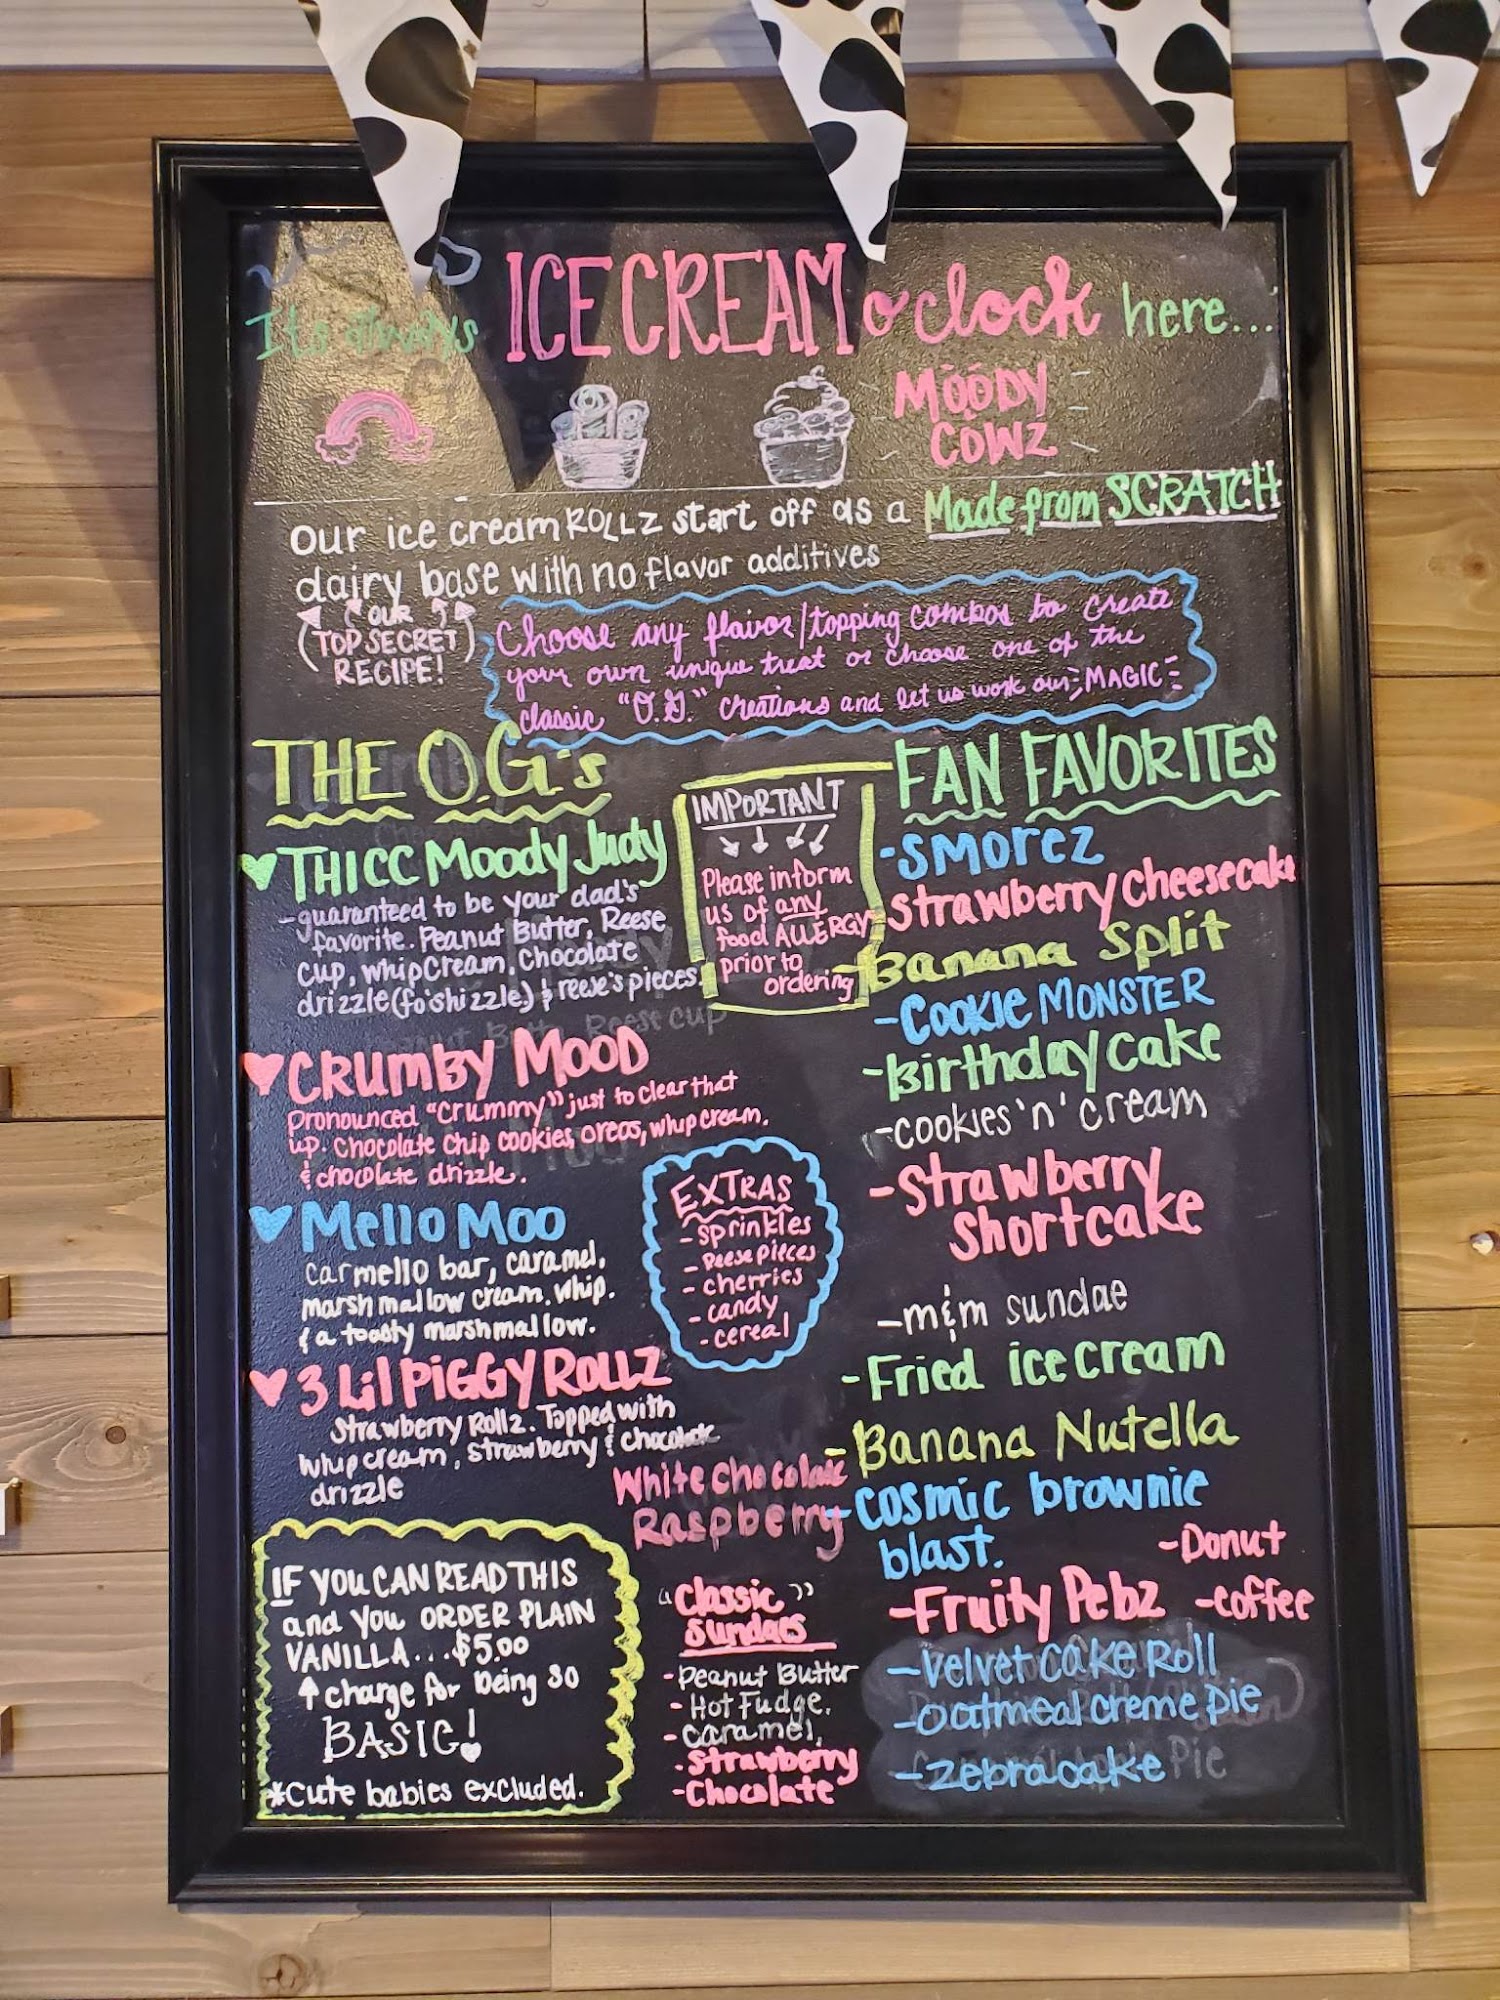 It's always ICE CREAM o'clock here...
MOODY
COWZ
Our ice cream ROLLZ start off as a Made from SCRATCH
dairy base with no flavor additives
(OUR
TOP SECRET)
RECIPE!
Choose any flavor/topping combos to create
your own unique treat or choose one of the
classic "O.G." Creations and let us work our MAGIC
THE O.G.'s
♥ THICC Moody Judy
-guaranteed to be your dad's
favorite. Peanut Butter, Reese
cup, whip cream, Chocolate
drizzle (fo shizzle) & reese's pieces.
♥ CRUMBY MOOD
pronounced "crummy" just to clear that
up. Chocolate chip cookies, oreos, whip cream,
& chocolate drizzle.
♥ Mello Moo
carmello bar, caramel,
marshmallow cream, whip.
& a toasty marshmallow.
♥ 3 Lil PIGGY ROLLZ
Strawberry Rollz. Topped with
whip cream, strawberry & chocolate
drizzle
IF YOU CAN READ THIS
and you ORDER PLAIN
VANILLA...$5.00
↑ charge for being so
BASIC!
*Cute babies excluded.
IMPORTANT
Please inform
us of any
food ALLERGY
prior to
ordering
EXTRAS
-sprinkles
-Reese pieces
-cherries
-candy
-cereal
White Chocolate
Raspberry
"Classic"
Sundaes
-Peanut Butter
-Hot Fudge.
-caramel.
-Strawberry
-Chocolate
FAN FAVORITES
-SMOREZ
Strawberry Cheesecake
-Banana Split
-Cookie MONSTER
-Birthday cake
-cookies 'n' cream
-Strawberry
shortcake
-m&m sundae
-Fried ice cream
-Banana Nutella
-cosmic brownie
blast.
-Donut
-Fruity Pebz
-coffee
-Velvet Cake Roll
-oatmeal creme pie
-zebra cake
Pie